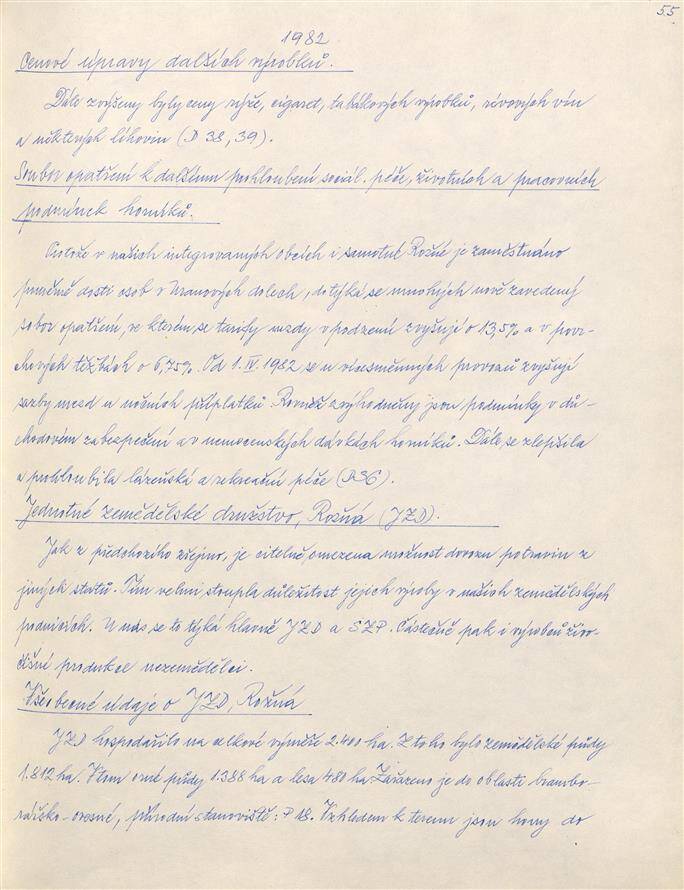 55
1982
Cenové úpravy dalších výrobků.
Dále zvýšeny byly ceny rýže, cigaret, tabákových výrobků, révových vín
a některých lihovin (D 38, 39).
Soubor opatření k dalšímu prohloubení sociál. péče, životních a pracovních
podmínek horníků.
Protože v našich integrovaných obcích i samotné Rožné je zaměstnáno
poměrně dosti osob v Uranových dolech, dotýká se mnohých nově zavedený
sobor opatření, ve kterém se tarify mzdy v podzemí zvyšují o 13,5% a v povr-
chových těžbách o 6,75%. Od 1. IV. 1982 se u vícesměnných provozů zvyšují
sazby mezd u nočních příplatků. Rovněž zvýhodněny jsou podmínky v dů-
chodovém zabezpečení a v nemocenských dávkách horníků. Dále se zlepšila
a prohloubila lázeňská a rekreační péče (D36).
Jednotné zemědělské družstvo, Rožná (JZD).
Jak z předchozího zřejmo, je citelně omezena možnost dovozu potravin z
jiných států. Tím velmi stoupla důležitost jejich výroby v našich zemědělských
podnicích. U nás se to týká hlavně JZD a SZP. Částečně pak i výrobců živo-
čišní produkce nezemědělci.
Všeobecné údaje o JZD, Rožná
JZD hospodařilo na celkové výměře 2.400 ha. Z toho bylo zemědělské půdy
1.812 ha. Z tem orné půdy 1.388 ha a lesa 480 ha. Zařazeno je do oblasti brambo-
rářsko-ovesné, přírodní stanoviště: P 18. Vzhledem k terenu jsou hony do